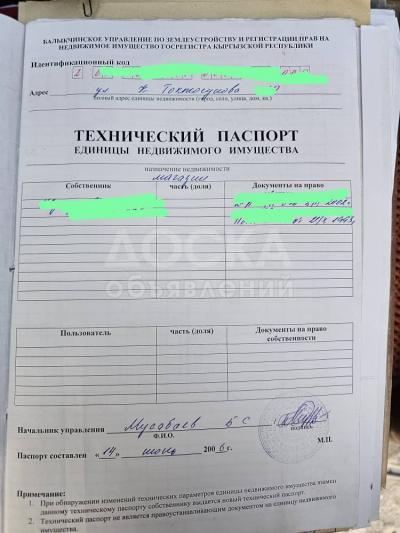 БАЛЫКЧИНСКОЕ УПРАВЛЕНИЕ ПО ЗЕМЛЕУСТРОЙСТВУ И РЕГИСТРАЦИИ ПРАВ НА
НЕДВИЖИМОЕ ИМУЩЕСТВО ГОСРЕГИСТРА КЫРГЫЗСКОЙ РЕСПУБЛИКИ
Идентификационный код
Адрес ул Токтогулова
полный адрес единицы недвижимости (город, село, улица, дом, кв.)
ТЕХНИЧЕСКИЙ ПАСПОРТ
ЕДИНИЦЫ НЕДВИЖИМОГО ИМУЩЕСТВА
назначение недвижимости
магазин
Собственник часть (доля) Документы на право
ДОСКА
ОБЪЯВЛЕНИЙ
Пользователь часть (доля) Документы на право
собственности
Начальник управления Мусабаев Б С
Ф.И.О. подпись
Паспорт составлен «14» июнь 2006 г. М.П.
Примечание:
1. При обнаружении изменений технических параметров единицы недвижимого имущества взамен
данному техническому паспорту собственнику выдается новый технический паспорт.
2. Технический паспорт не является правоустанавливающим документом на единицу недвижимого
имущества.